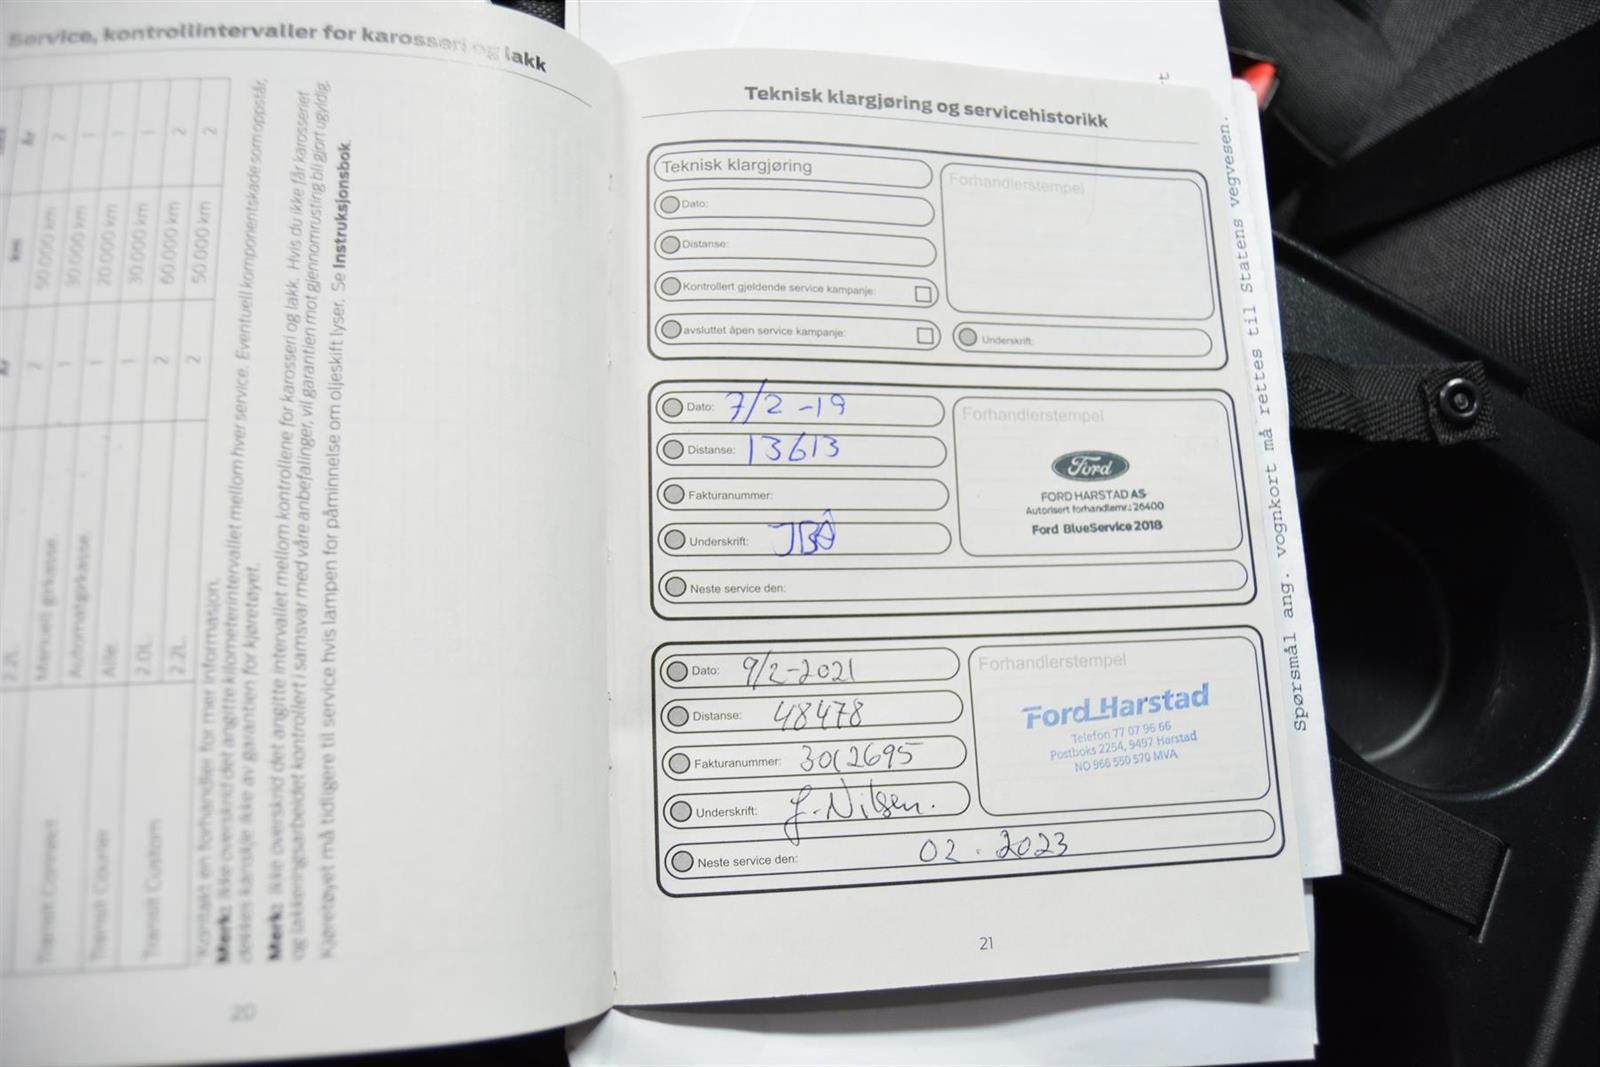 Service, kontrollintervaller for karosseri og lakk
år
km
År
2
50 000 km
2
1
30 000 km
1
1
20 000 km
1
1
30 000 km
1
2
60 000 km
2
2
50 000 km
2
2.2L
Manuell girkasse
Automatgirkasse
Alle
2.0L
2.2L
Transit Connect
Transit Courier
Transit Custom
Kontakt en forhandler for mer informasjon.
Merk: Ikke overskrid det angitte kilometerintervallet mellom hver service. Eventuell komponentskade som oppstår,
dekkes kanskje ikke av garantien for kjøretøyet.
Merk: Ikke overskrid det angitte intervallet mellom kontrollene for karosseri og lakk. Hvis du ikke får karosseriet
og lakkeringsarbeidet kontrollert i samsvar med våre anbefalinger, vil garantien mot gjennomrusting bli gjort ugyldig.
Kjøretøyet må tidligere til service hvis lampen for påminnelse om oljeskift lyser. Se Instruksjonsbok.
20
Teknisk klargjøring og servicehistorikk
Teknisk klargjøring
Forhandlerstempel
Dato:
Distanse:
Kontrollert gjeldende service kampanje:
avsluttet åpen service kampanje:
Underskrift:
Dato: 7/2 -19
Forhandlerstempel
Distanse: 13613
Ford
FORD HARSTAD AS
Autorisert forhandlernr.: 26400
Ford BlueService 2018
Fakturanummer:
Underskrift: JBÅ
Neste service den:
Dato: 9/2-2021
Forhandlerstempel
Distanse: 48478
Ford Harstad
Telefon 77 07 96 66
Postboks 2254, 9497 Harstad
NO 966 550 570 MVA
Fakturanummer: 30(2695
Underskrift: J. Nilsen.
Neste service den: 02. 2023
21
Spørsmål ang. vognkort må rettes til Statens vegvesen.